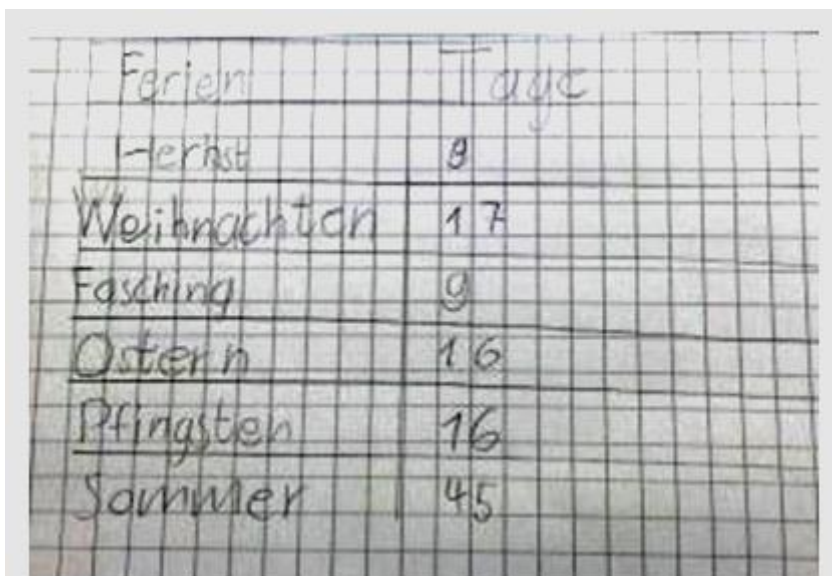 Ferien Tage
Herbst 8
Weihnachten 17
Fasching 9
Ostern 16
Pfingsten 16
Sommer 45